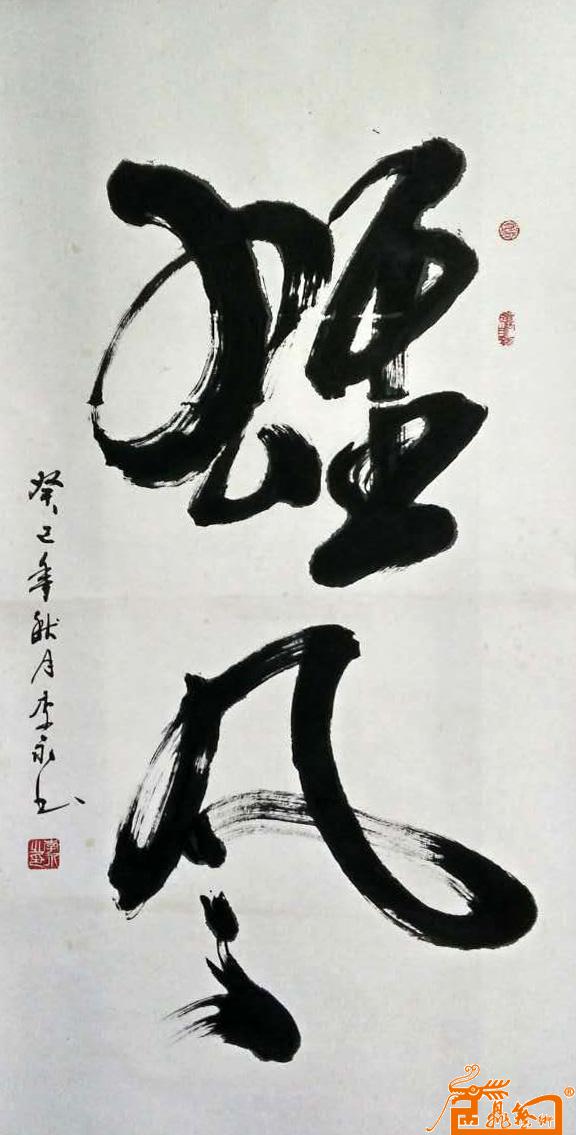 雄风
癸巳年秋月李永书